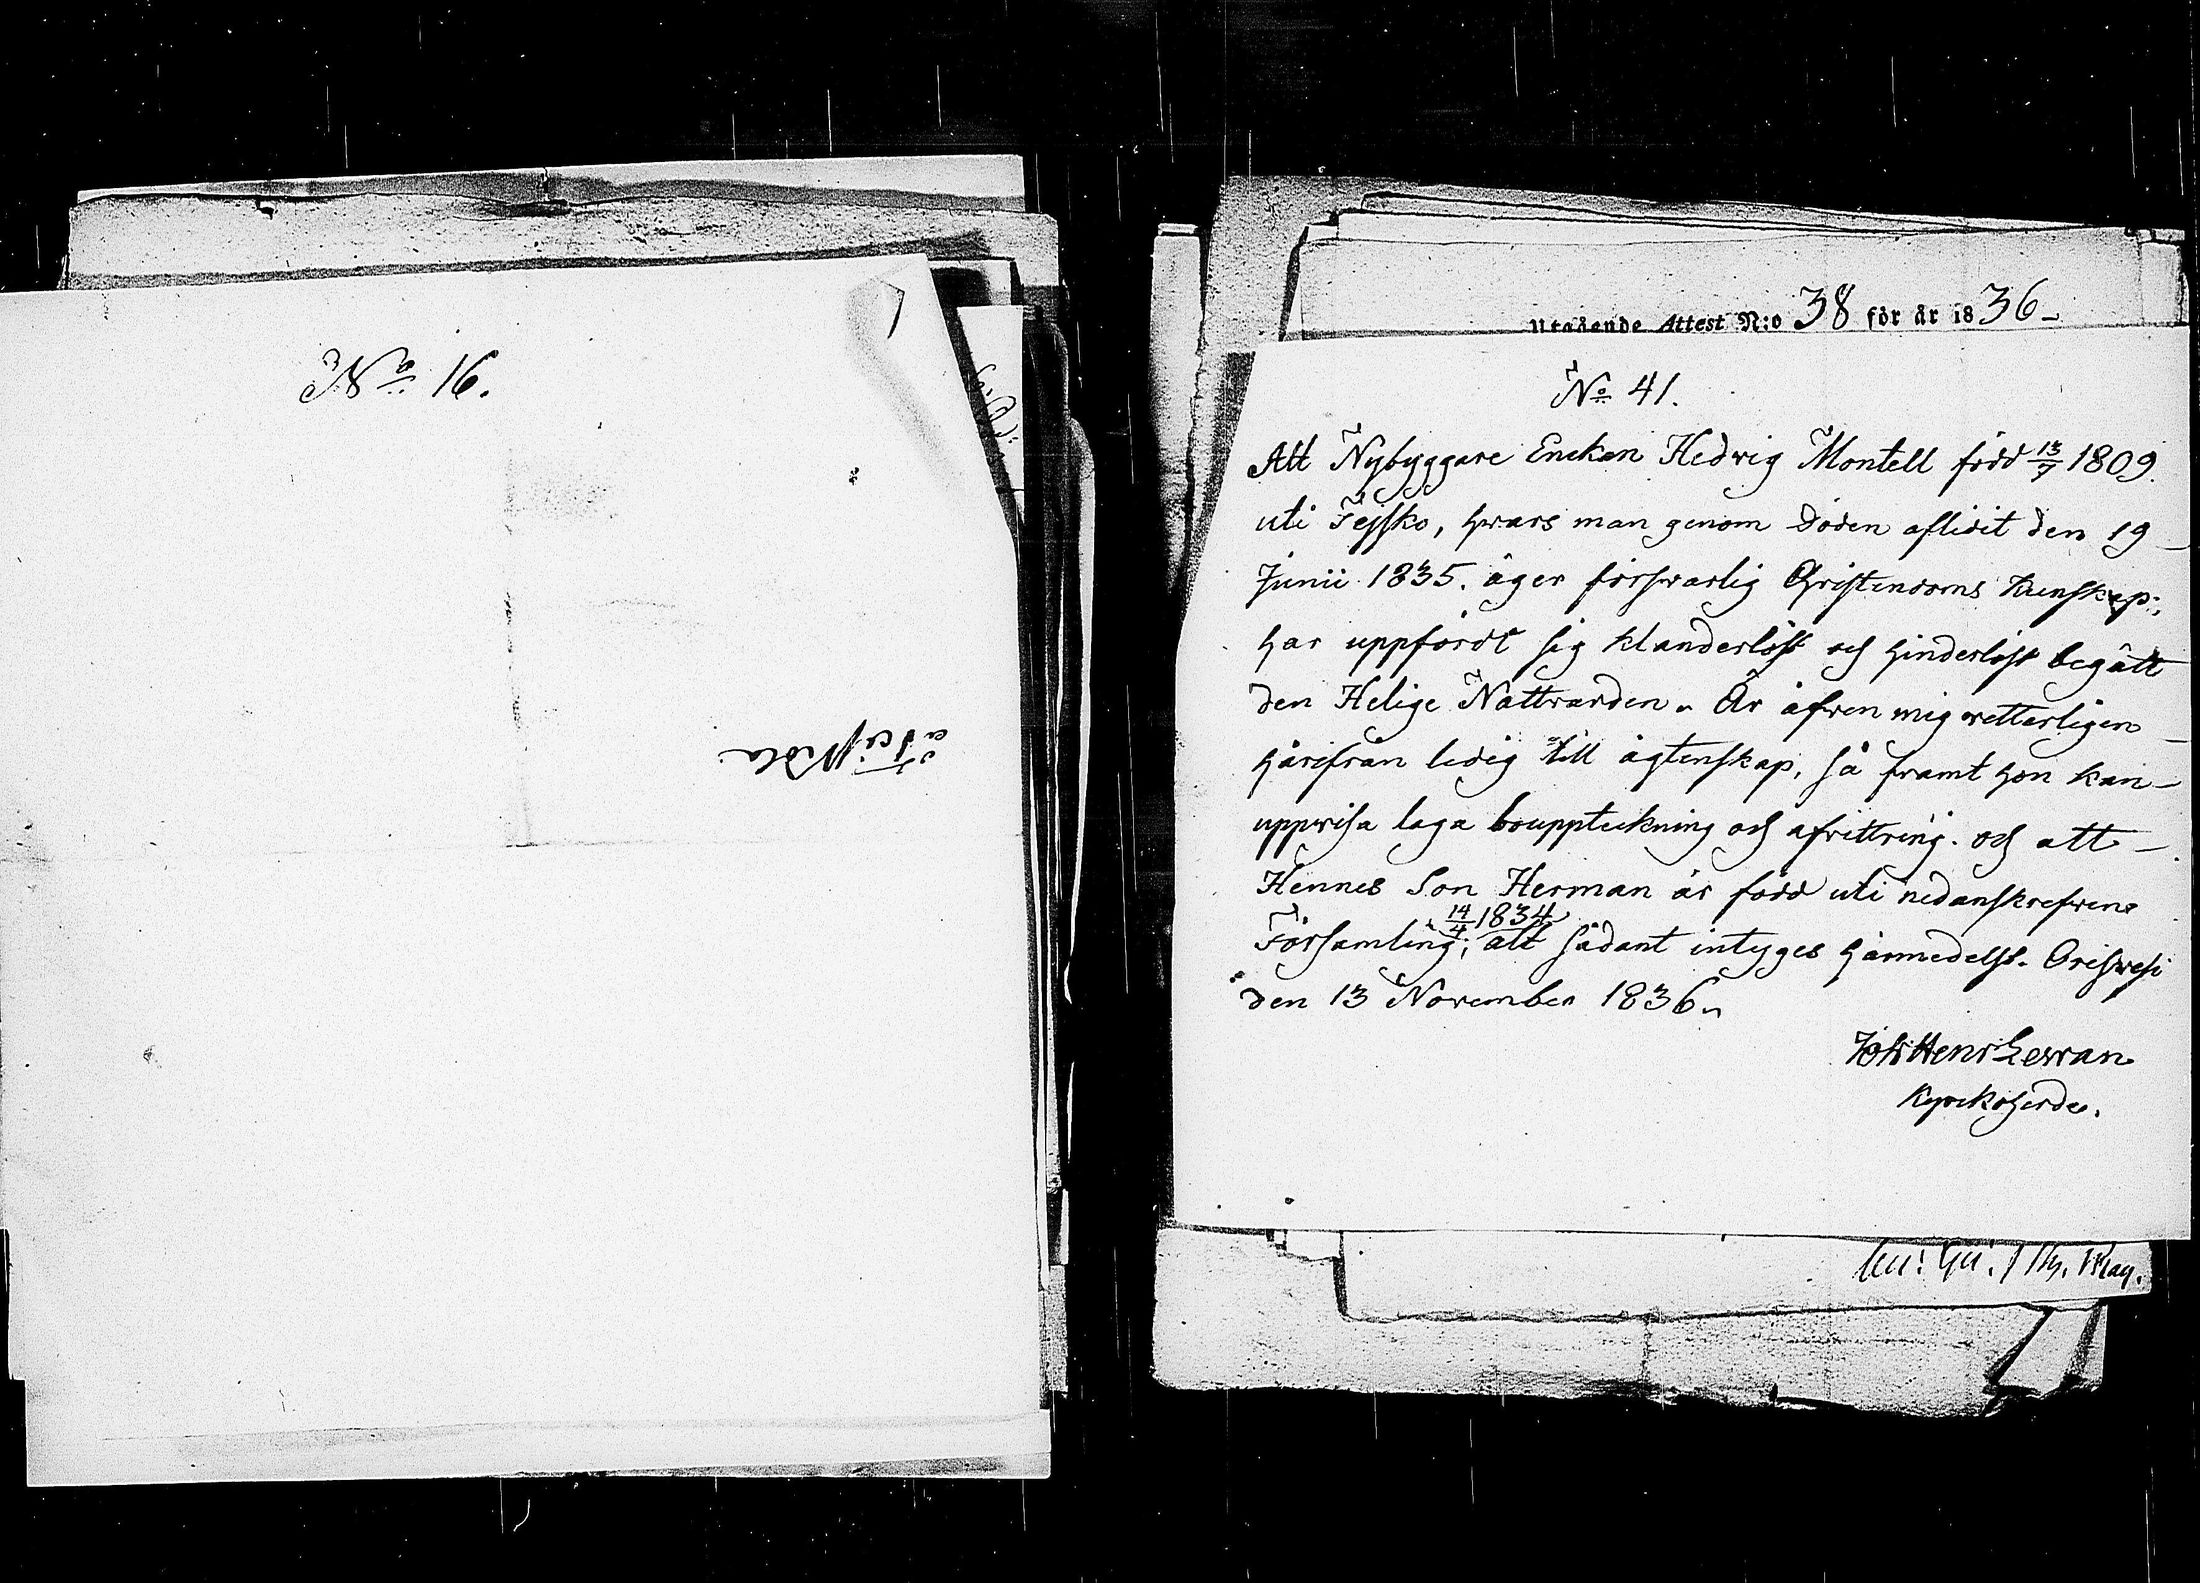 No 16.
Utgående Attest N:o 38 för år 1836
No 41.
Att Nybyggare Enckan Hedvig Montell född 13/7 1809.
uti Fejsko, hvars man genom döden aflidit den 19
Junii 1835. äger försvarlig Christendoms kunskap;
har uppfördt sig klanderlöst och hinderlöst begått
den Helige Nattvarden. Är äfven mig vetterligen
härifrån ledig till ägtenskap, så framt hon kan
uppvisa laga bouppteckning och afvittring. och att
Hennes Son Herman är född uti nedanskrefvene
Församling; 14/4 1834 alt sådant intyges härmedelst. Orisvesi
den 13 November 1836.
Joh Henr
Kyrckoherde.